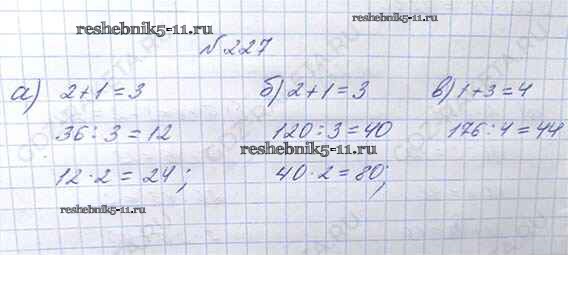 reshebnik5-11.ru
reshebnik5-11.ru
№227
а) 2+1=3
36:3=12
12·2=24;
б) 2+1=3
120:3=40
40·2=80;
в) 1+3=4
176:4=44
reshebnik5-11.ru
reshebnik5-11.ru